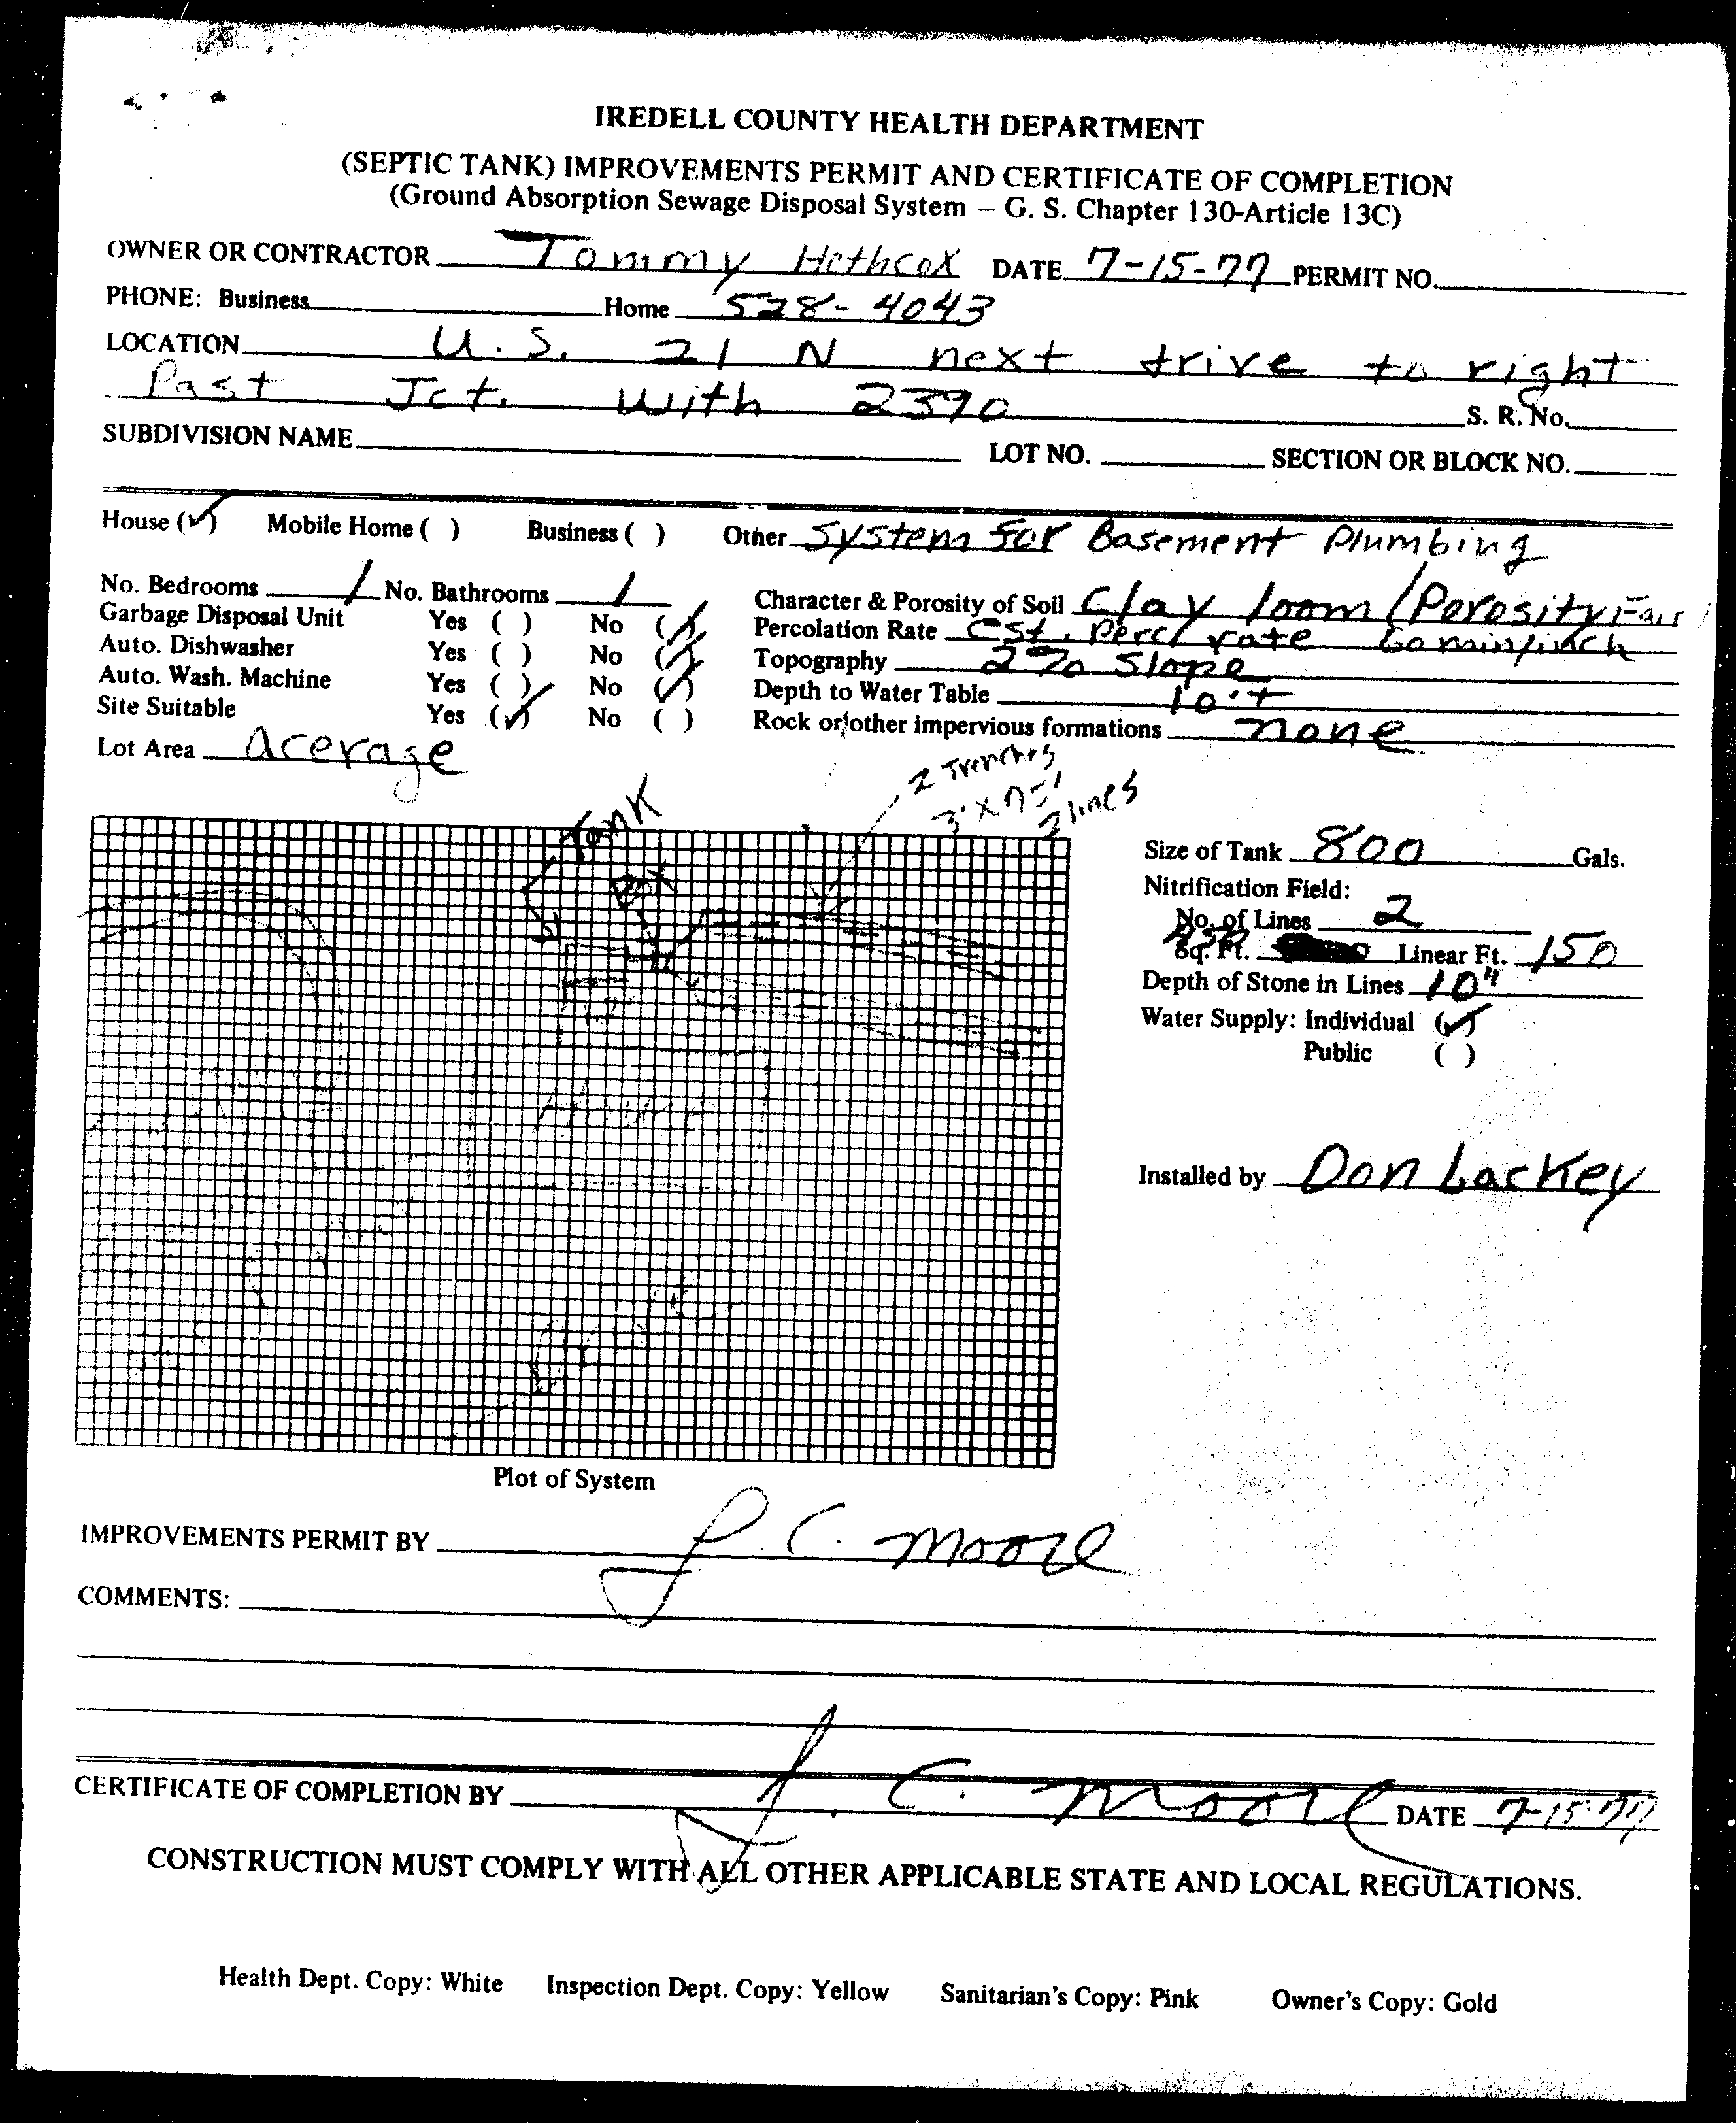 IREDELL COUNTY HEALTH DEPARTMENT
(SEPTIC TANK) IMPROVEMENTS PERMIT AND CERTIFICATE OF COMPLETION
(Ground Absorption Sewage Disposal System – G. S. Chapter 130-Article 13C)
OWNER OR CONTRACTOR Tommy Hethcox DATE 7-15-77 PERMIT NO.
PHONE: Business Home 528-4043
LOCATION U.S. 21 N next trive to right
Past Jct. With 2390 S. R. No.
SUBDIVISION NAME LOT NO. SECTION OR BLOCK NO.
House (✓) Mobile Home ( ) Business ( ) Other System For Basement Plumbing
No. Bedrooms 1 No. Bathrooms 1 Character & Porosity of Soil Clay loom (Porosity Fair)
Garbage Disposal Unit Yes ( ) No (✓) Percolation Rate Est. Perc rate 60 min/inch
Auto. Dishwasher Yes ( ) No (✓) Topography 2% Slope
Auto. Wash. Machine Yes ( ) No (✓) Depth to Water Table 10'+
Site Suitable Yes (✓) No ( ) Rock or other impervious formations none
Lot Area acerage
2 Trenches
3' X 75'
2 lines
Tank
Box
Size of Tank 800 Gals.
Nitrification Field:
No. of Lines 2
Sq. Ft. 450 Linear Ft. 150
Depth of Stone in Lines 10"
Water Supply: Individual (✓)
Public ( )
House
Installed by Don Lackey
Plot of System
IMPROVEMENTS PERMIT BY J. C. Moore
COMMENTS:
CERTIFICATE OF COMPLETION BY J. C. Moore DATE 7-15-77
CONSTRUCTION MUST COMPLY WITH ALL OTHER APPLICABLE STATE AND LOCAL REGULATIONS.
Health Dept. Copy: White Inspection Dept. Copy: Yellow Sanitarian's Copy: Pink Owner's Copy: Gold